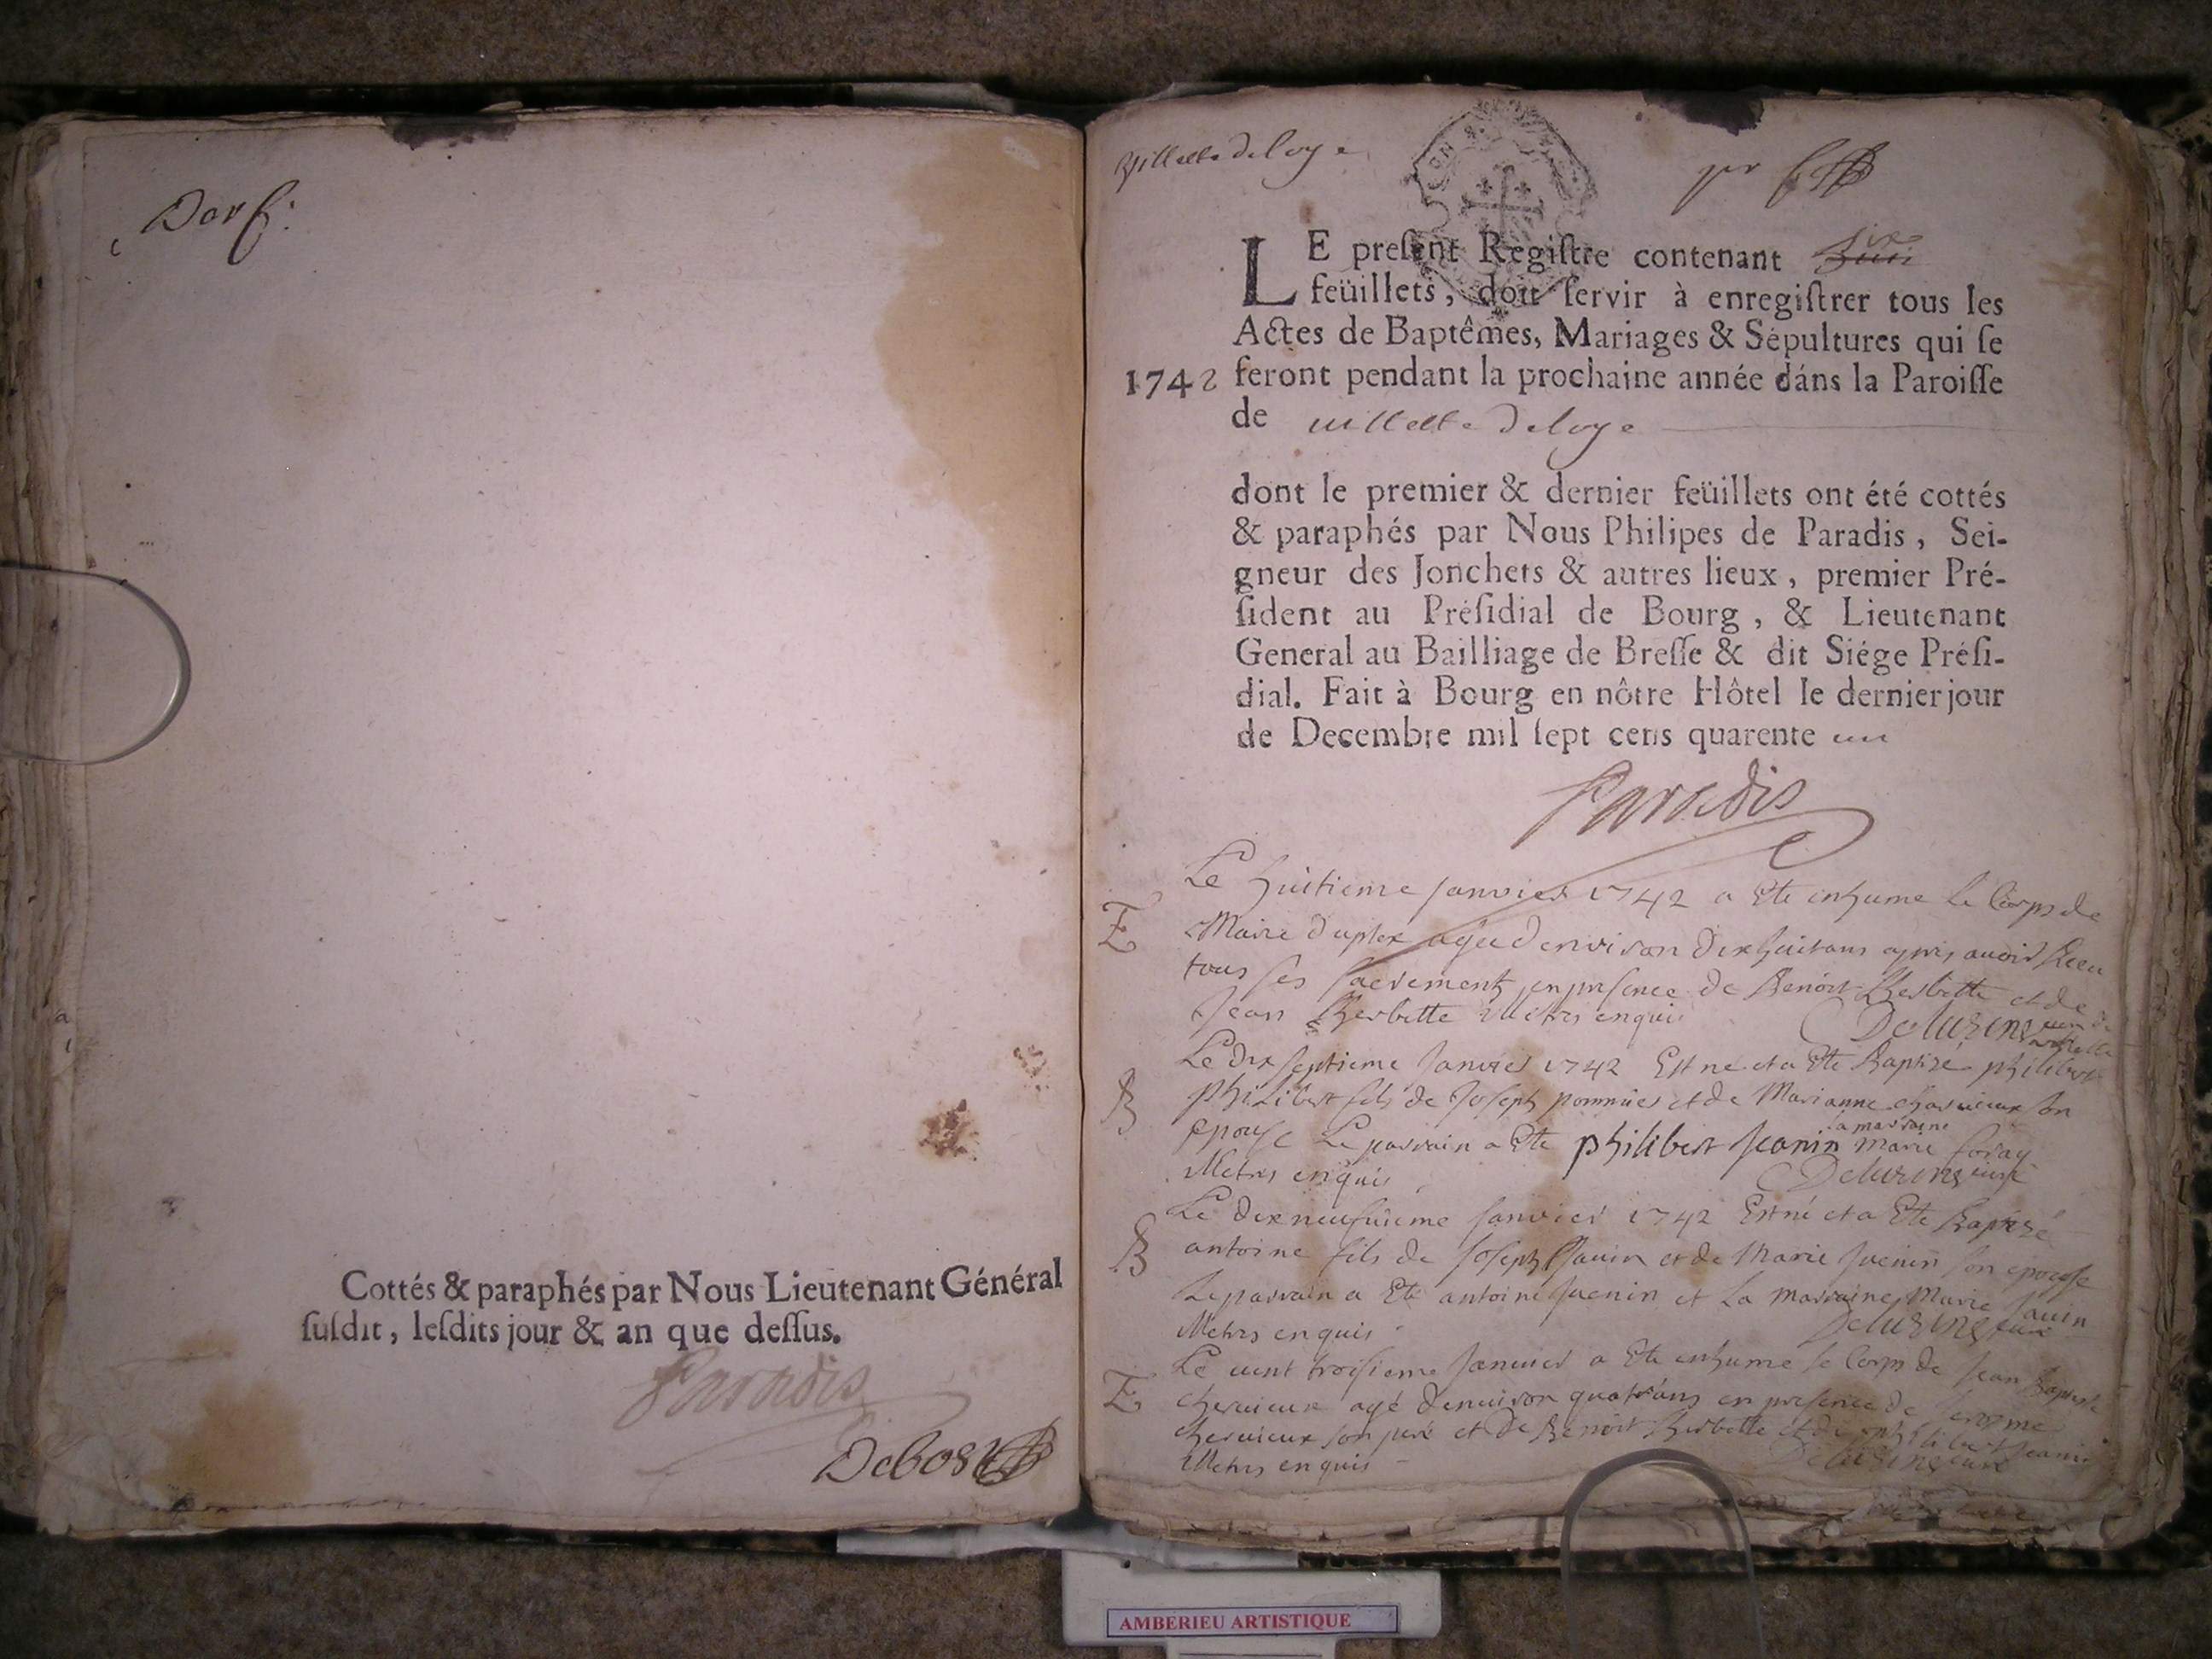 Cottés & paraphés par Nous Lieutenant Général
ſuſdit, leſdits jour & an que deſſus.
Paradis
Villette de loye
LE preſent Regiſtre contenant six
feüillets, doit ſervir à enregiſtrer tous les
Actes de Baptêmes, Mariages & Sépultures qui ſe
1742 feront pendant la prochaine année dáns la Paroiſſe
de villette de loye
dont le premier & dernier feüillets ont été cottés
& paraphés par Nous Philipes de Paradis, Sei-
gneur des Jonchets & autres lieux, premier Pré-
ſident au Préſidial de Bourg, & Lieutenant
General au Bailliage de Breſſe & dit Siége Préſi-
dial. Fait à Bourg en nôtre Hôtel le dernier jour
de Decembre mil ſept cens quarente un
Paradis
Le huitieme Janvier 1742 a Ete inhume le Corps de
E Marie duplex agée denviron dixhuit ans apres avoir Receu
tous ses sacrements en presence de Benoit Berbette et de
Jean Berbette illetrés enquis
Le dix septieme Janvier 1742 Est né et a Ete Baptizé philibert
B philibert fils de Joseph et de Marianne son
epouse Le parrain a Ete philibert Jeanin la marraine marie
illetrés enquis
Le dixneufvieme Janvier 1742 Est né et a Ete Baptizé
B antoine fils de Joseph Sauin et de Marie Juenin son epouse
Le parrain a Ete antoine Juenin et La marraine Marie Sauin
illetrés enquis
Le vint troisieme Janvier a Ete enhumé le Corps de Jean Baptiste
E cheruieux agé denuiron quatr'ans en presence de Jerosme
cheruieux son peré et de Benoit Berbette et de philibert Jeanin
illetrés enquis
AMBERIEU ARTISTIQUE